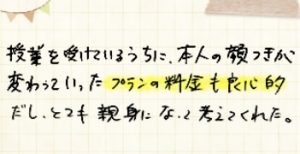 授業を受けているうちに、本人の顔つきが
変わっていった プランの料金も良心的
だし、とても親身になって考えてくれた。